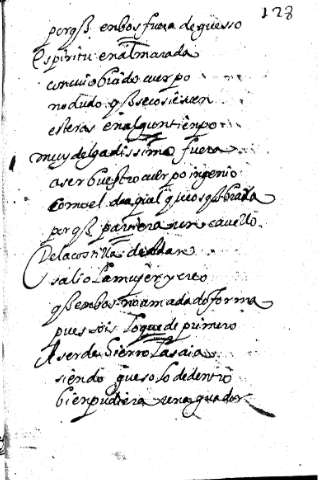 128
porq̃ en bos fuera de guesso
espiritu enalmarada
con cuio brado cuerpo
no dudo q̃ se cosiesen
esteras en algun tienpo
muy delgadissima fuera
a ser buestro cuerpo ingenio
como el de aquel que os
porq̃ pariera un cavello
De la costilla de Adan
salio la muger y creo
q̃ en bos no a mudado forma
pues sois lo que de primero
A ser de hierro la saia
siendo gueso lo de dentro
bien pudiera una guador